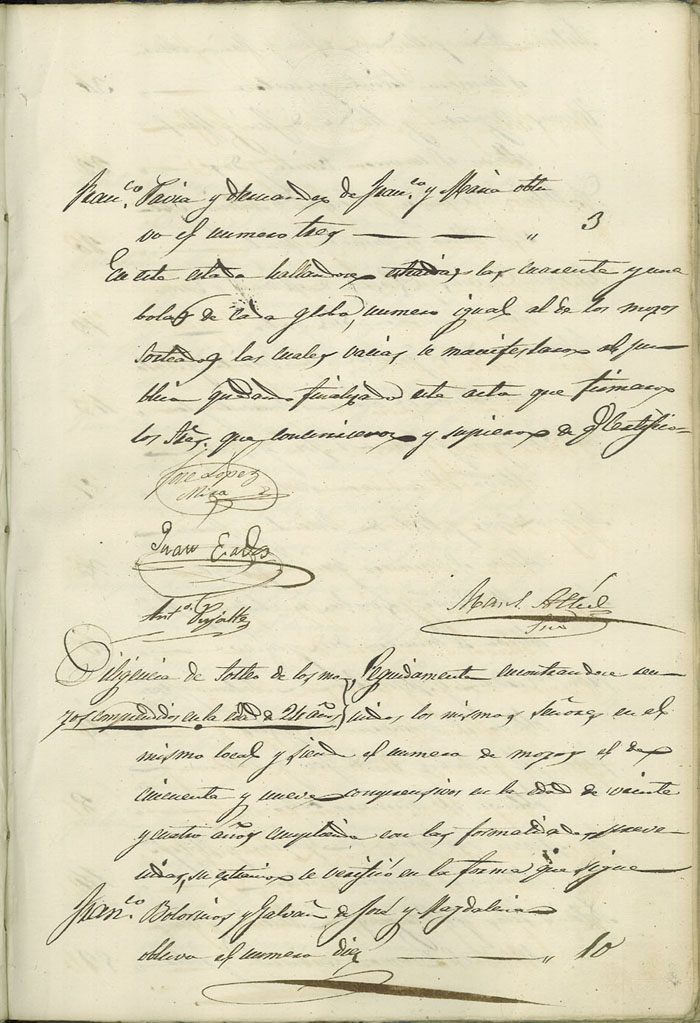 Fran.co Pavia y Hernandez de Fran.co y Maria obtu
vo el numero tres — — — " 3
En este estado hallandose las cuarenta y una
bolas de cada globo, numero igual al de los mozos
sorteados las cuales vacias se manifestaron al pu-
blico quedando finalizado este acta que firmaron
los Sres. que concurrieron y supieron de q.e Certifico=
Jose Lopez
Mira
Juan
Ant.o Pujalte
Man.l
Srio
Diligencia de sorteo de los mo- } Seguidamente encontrandose reu-
zos comprendidos en la edad de 24 años } nidos los mismos Señores en el
mismo local y siendo el numero de mozos el de
cincuenta y nueve comprensivos en la edad de veinte
y cuatro años cumpliendo con las formalidades preve-
nidas, su extraccion se verificó en la forma que sigue
Fran.co y Galvañ de José y Magdalena
obtuvo el numero diez — — — " 10